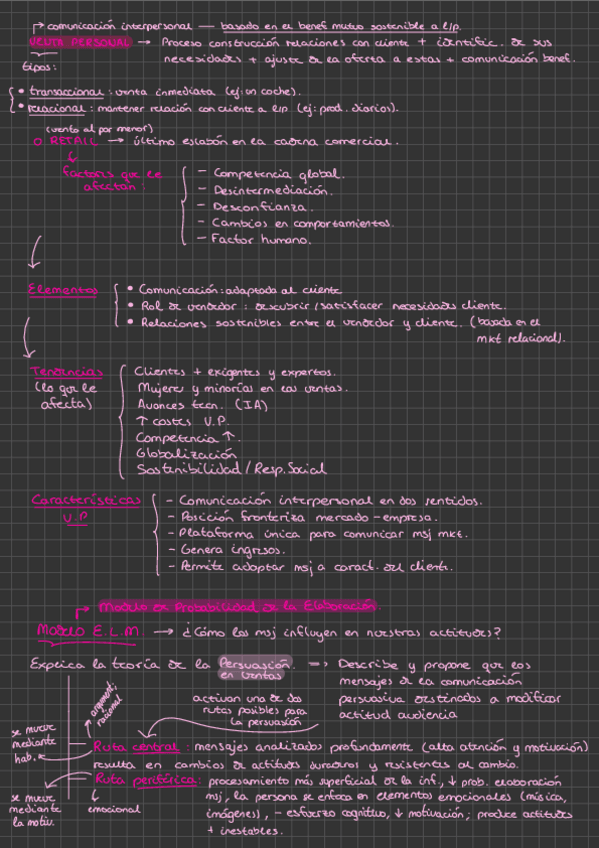 comunicación interpersonal — basado en el benef mutuo sostenible a l/p.
VENTA PERSONAL → Proceso construcción relaciones con cliente + identific. de sus
necesidades + ajuste de la oferta a estas + comunicación benef.
tipos:
• transaccional: venta inmediata (ej: un coche).
• relacional: mantener relación con cliente a l/p (ej: prod. diarios).
(venta al por menor)
O RETAIL → último eslabón en la cadena comercial.
factores que le
afectan:
– Competencia global.
– Desintermediación.
– Desconfianza.
– Cambios en comportamientos.
– Factor humano.
Elementos
• Comunicación: adaptada al cliente
• Rol de vendedor: descubrir/satisfacer necesidades cliente.
• Relaciones sostenibles entre el vendedor y cliente. (basada en el
mkt relacional).
Tendencias
(lo que le
afecta)
Clientes + exigentes y expertos.
Mujeres y minorías en las ventas.
Avances tecn. (IA)
↑ costes V.P.
Competencia ↑.
Globalización
Sostenibilidad / Resp. Social
Características
V.P
– Comunicación interpersonal en dos sentidos.
– Posición fronteriza mercado – empresa.
– Plataforma única para comunicar msj mkt.
– Genera ingresos.
– Permite adaptar msj a caract. del cliente.
Modelo de Probabilidad de la Elaboración.
Modelo E.L.M. → ¿Cómo los msj influyen en nuestras actitudes?
Explica la teoría de la Persuasión
en ventas
⇒ Describe y propone que los
mensajes de la comunicación
persuasiva destinados a modificar
actitud audiencia
activan una de dos
rutas posibles para
la persuasión
argument.
racional
se mueve
mediante
hab.
Ruta central: mensajes analizados profundamente (alta atención y motivación)
resulta en cambios de actitudes duraderos y resistentes al cambio.
Ruta periférica: procesamiento más superficial de la inf., ↓ prob. elaboración
msj, la persona se enfoca en elementos emocionales (música,
imágenes), – esfuerzo cognitivo, ↓ motivación; produce actitudes
+ inestables.
emocional
se mueve
mediante
la motiv.